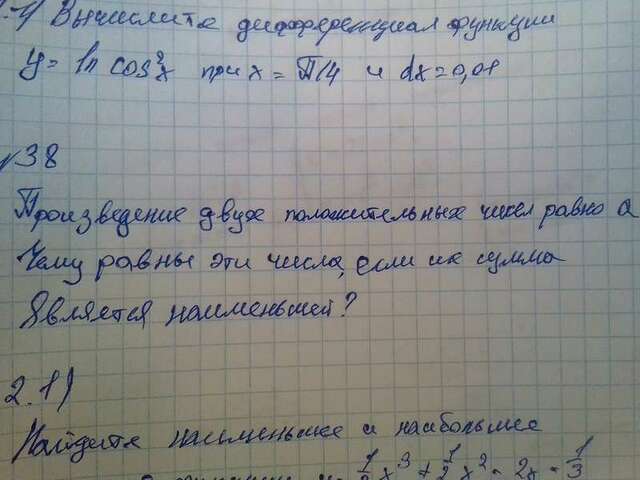 Вычислите дифференциал функции
y = ln cos²x при x = П/4 и dx = 0,01
№38
Произведение двух положительных чисел равно a
Чему равны эти числа, если их сумма
Является наименьшей?
2.1)
Найдите наименьшее и наибольшее
x³ + 1/2 x² - 2x - 1/3